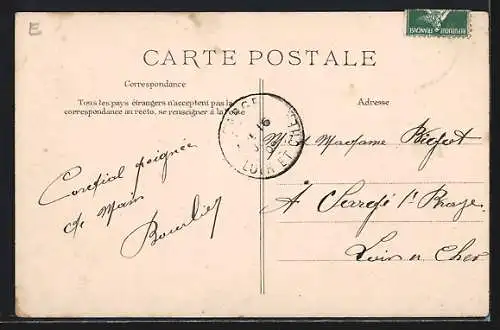 E
REPUBLIQUE FRANÇAISE
CARTE POSTALE
Correspondance
Tous les pays étrangers n'acceptent pas la
correspondance au recto, se renseigner à la Poste
Adresse
LOIR ET CHER
16
Cordial poignée
de Main
Bourlier
M. et Madame
À Sargé s/ Braye
Loir et Cher